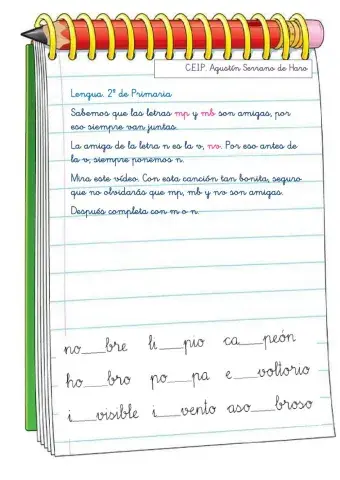 C.E.I.P. Agustín Serrano de Haro
Lengua. 2º de Primaria
Sabemos que las letras mp y mb son amigas, por
eso siempre van juntas.
La amiga de la letra n es la v, nv. Por eso antes de
la v, siempre ponemos n.
Mira este vídeo. Con esta canción tan bonita, seguro
que no olvidarás que mp, mb y nv son amigas.
Después completa con m o n.
no___bre li___pio ca___peón
ho___bro po___pa e___voltorio
i___visible i___vento aso___broso